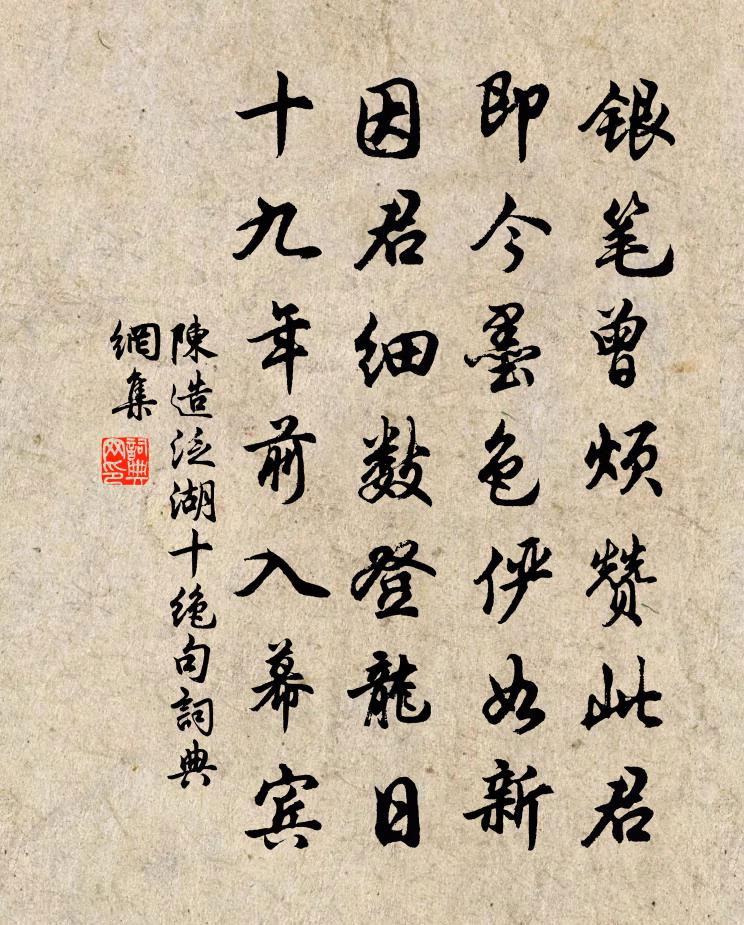 银笔曾烦赞此君
即今墨色俨如新
因君细数登龍日
十九年前入幕宾
陳造泛湖十绝句詞典
網集
詞典
网印